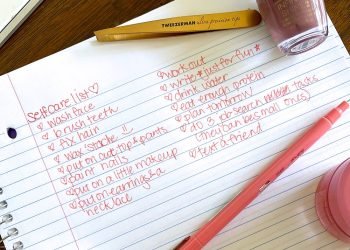 TWEEZERMAN ultra precision tips
Selfcare list♡
♡wash face
♡brush teeth
♡fix hair
♡wax 'stache !!
♡put on cute top & pants
♡paint nails
♡put on a little makeup
♡put on earrings & a
necklace
♡work out
♡write *just for fun*
♡drink water
♡eat enough protein
♡plan tomorrow
♡do 3 job search tasks
(they can be small ones)
♡text a friend